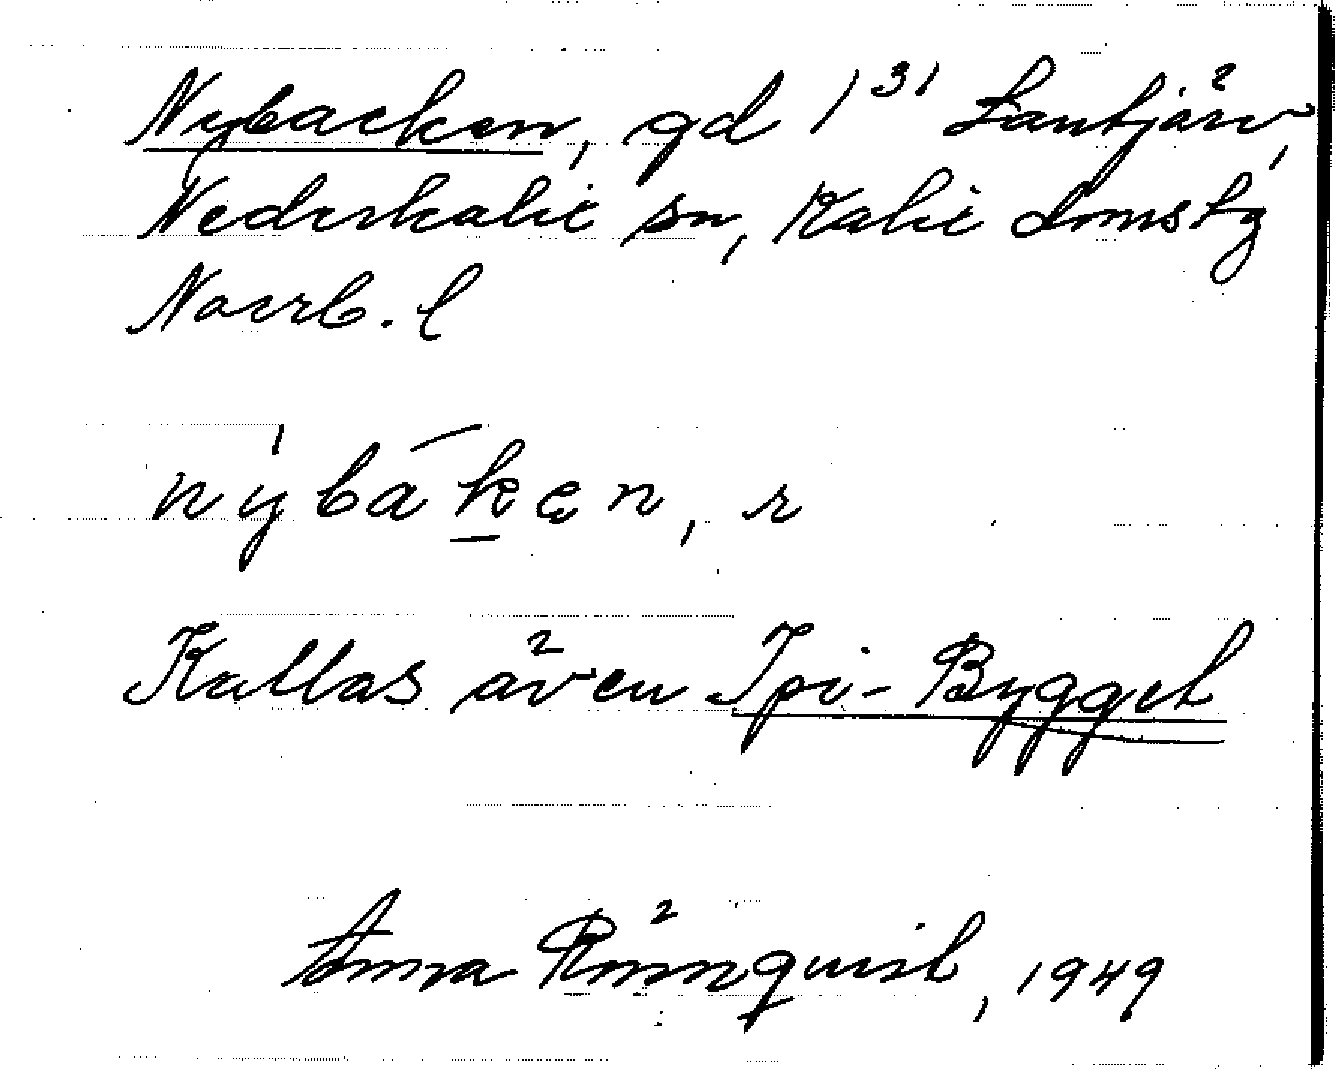 Nybacken, gd 1³¹ Lantjärv,
Nederkalix sn, Kalix domsbg
Norrb. l
nýbāken, r
Kallas även Ipi-Bygget
Anna Rönnquist, 1949